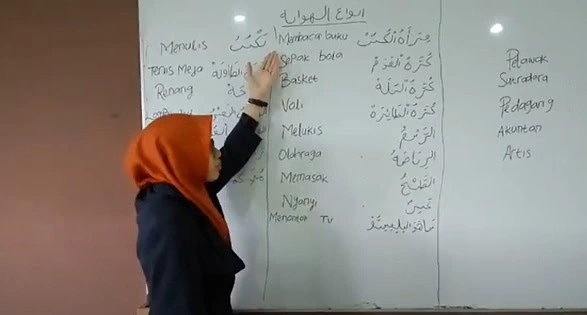 انواع الهواية
Menulis تَكْتُبُ
Tenis Meja
Renang
Membaca buku قِرَأَةُ الْكُتُبُ
Sepak bola كُرَةُ الْقَدَمُ
Basket كُرَةُ السَّلَّةُ
Voli كُرَةُ الطَّائِرَةُ
Melukis الرَّسْمُ
Olahraga الرِّيَاضَةُ
Memasak الطَّبْخُ
Nyanyi
Menonton TV
Pelawak
Sutradara
Pedagang
Akuntan
Artis